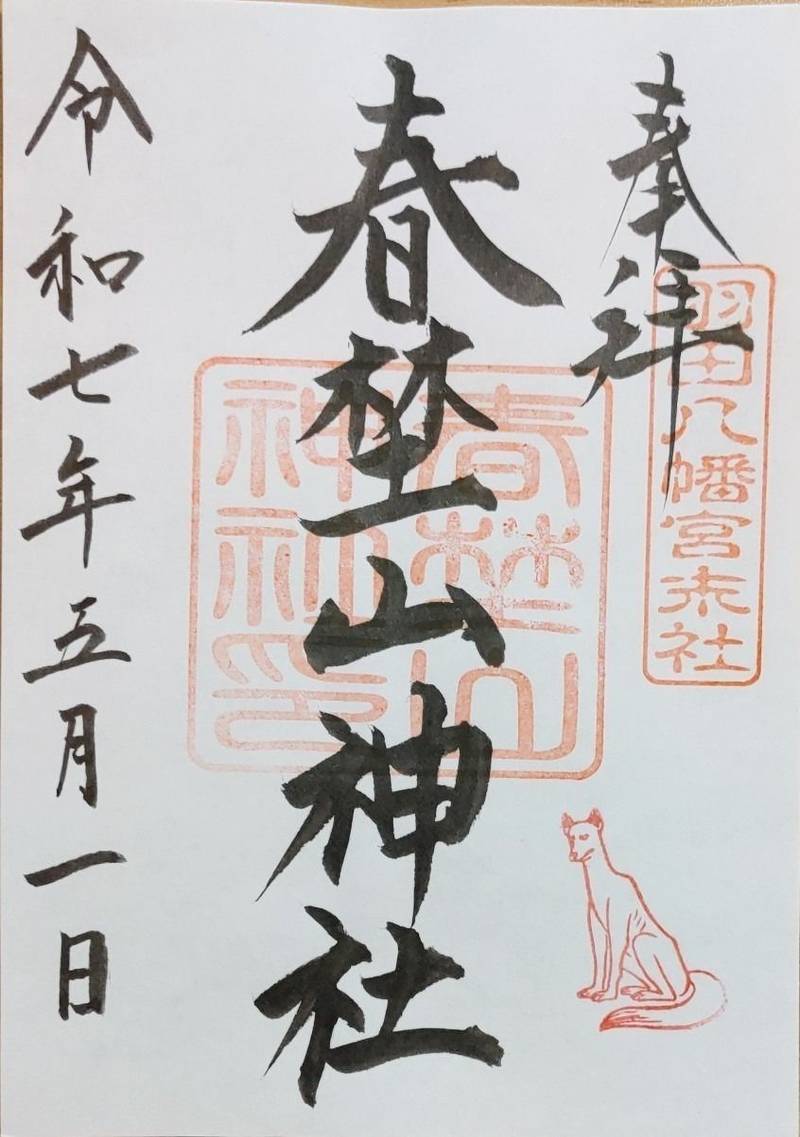 奉拝
羽田八幡宮末社
春埜山神社
春埜山
神社印
令和七年五月一日